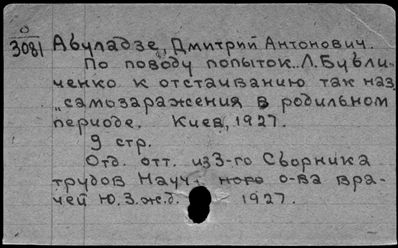 0
3081 Абуладзе, Дмитрий Антонович.
По поводу попыток Л. Бубли-
ченко к отстаиванию так наз.
"самозаражения в родильном
периоде. Киев, 1927.
9 стр.
Отд. отт. из 3-го Сборника
трудов Науч- ного о-ва вра-
чей Ю.З.ж.д. 1927.